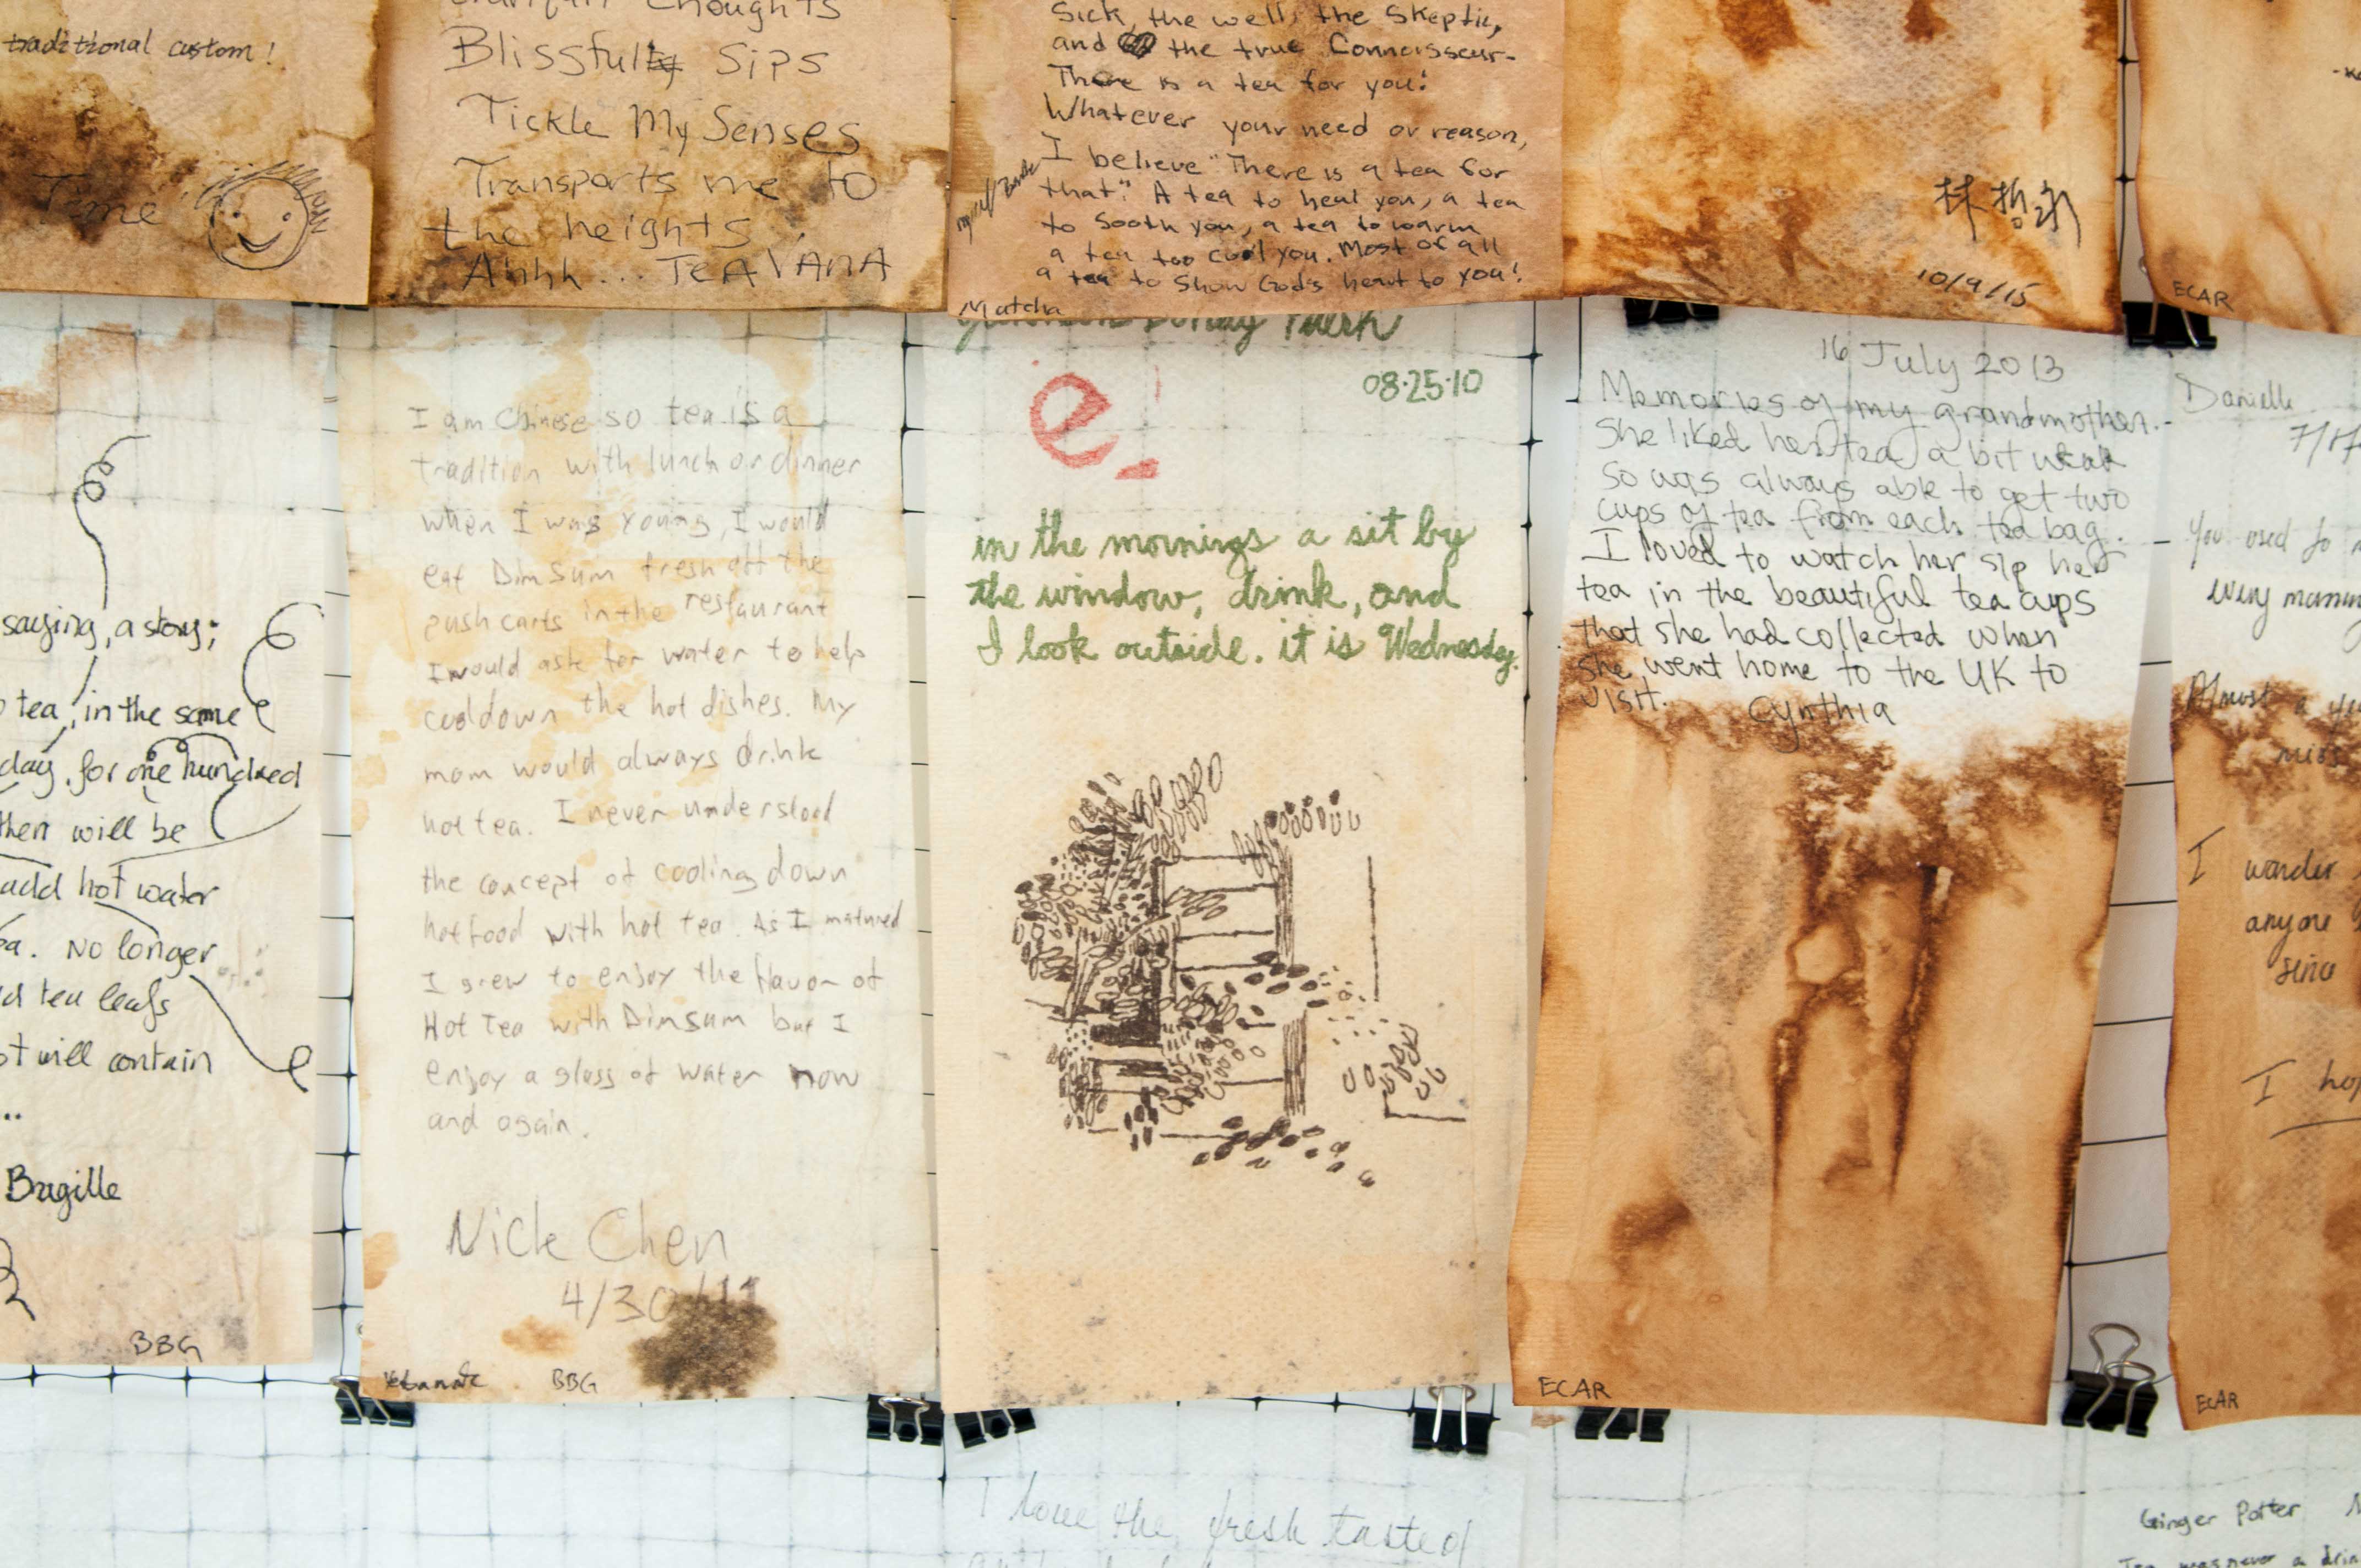 traditional custom!
Time
tranquil thoughts
Blissfully Sips
Tickle My Senses
Transports me to
the heights
Ahhh... TEAVANA
Sick, the well, the Skeptic,
and the true Connoisseur-
There is a tea for you!
Whatever your need or reason,
I believe "There is a tea for
that". A tea to heal you, a tea
to sooth you, a tea to warm
a tea too cool you. Most of all
a tea to show God's heart to you!
Matcha
林哲
10/9/15
ECAR
saying, a story;
tea, in the same
day, for one hundred
then will be
add hot water
No longer
tea leafs
will contain
...
Bragille
BBG
I am Chinese so tea is a
tradition with lunch or dinner
when I was young, I would
eat DimSum fresh off the
push carts in the restaurant
I would ask for water to help
cooldown the hot dishes. My
mom would always drink
hot tea. I never understood
the concept of cooling down
hot food with hot tea. As I matured
I grew to enjoy the flavor of
Hot Tea with Dimsum but I
enjoy a glass of water now
and again.
Nick Chen
4/30/11
BBG
e
08·25·10
in the mornings a sit by
the window, drink, and
I look outside. it is Wednesday.
16 July 2013
Memories of my grandmother.
She liked her tea a bit weak
so was always able to get two
cups of tea from each tea bag.
I loved to watch her sip her
tea in the beautiful tea cups
that she had collected when
she went home to the UK to
visit. Cynthia
ECAR
Danielle
7/17
You used to
every morning
Almost a
miss
I wonder
anyone
since
I
ECAR
I love the fresh tasted
Ginger Potter
Tea was never a